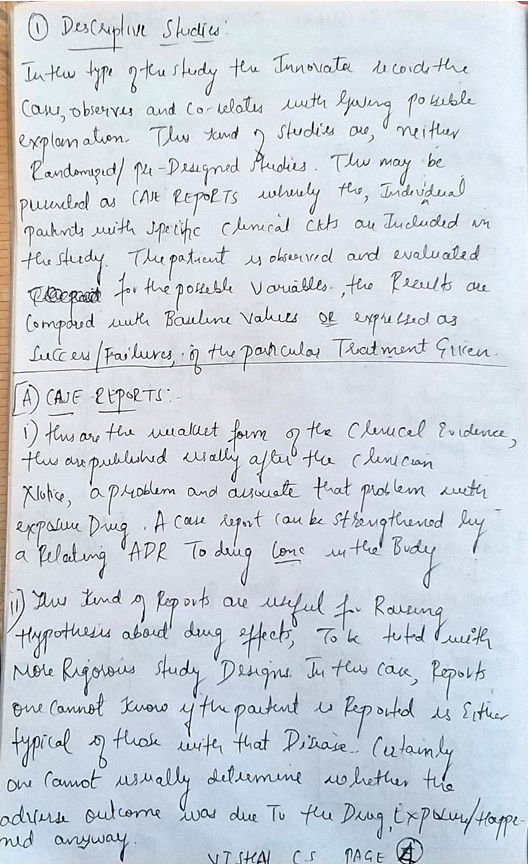 ① Descriptive Studies:
In this type of the study the Innovator records the
Case, observes and co-relates with giving possible
explanation. This kind of studies are, neither
Randomized/ pre-Designed Studies. This may be
presented as CASE REPORTS whereby the, Individual
patients with specific Clinical are Included in
the study. The patient is observed and evaluated
for the possible Variables, the Results are
Compared with Baseline Values OR expressed as
Success/Failures, of the particular Treatment Given.
A) CASE REPORTS:-
i) this are the weakest form of the Clinical Evidence,
this are published usually after the clinician
Notice, a problem and associate that problem with
exposure Drug. A case report can be strengthened by
a Relating ADR To drug Conc in the Body
ii) This kind of Reports are useful for Raising
Hypothesis about drug effects, To be tested with
More Rigorous Study Designs. In this case, Reports
one cannot know if the patient is Reported is Either
typical of those with that Disease. Certainly
one Cannot usually determine whether the
adverse outcome was due To the Drug, Exposure/Happe-
ned anyway.
VISHAL C S PAGE